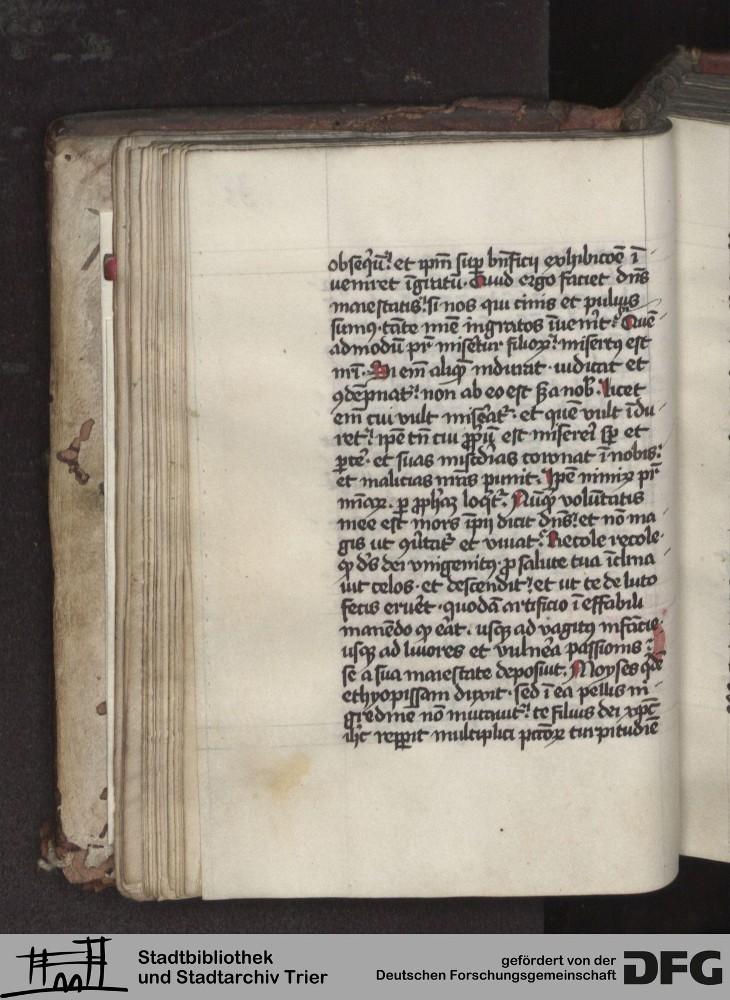 obseqūi et ip̄m sup̱ bn̄ficij exhibicōe ī
veniret īgratū. Quid ergo faciet dn̄s
maiestatis! si nos qui cinis et puluis
sumꝰ. tāte mīe ingratos īuen̄it? Quē
admodū pr̄ miset̄ur filioꝝ! misertꝰ est
nr̄i. Si em̄ aliqͫ indurat. iudicat et
ꝯdēpnat! non ab eo est s̄ a nob̄. licet
em̄ cui vult miseāt᷑. et quē vult īdu
ret! ip̄e tn̄ cui ꝓpiū est misereri sp̄ et
ꝑc̄e. et suas misc̄dias coronat ī nobis!
et malicias nr̄as punit. Ip̄e nimiꝝ pr̄
mīaꝝ. ꝑ ꝓphaꝫ loqͥt᷑. Nūqͥ volūtatis
mee est mors īpij dicit dn̄s! et nō ma
gis ut ꝯu̓tat᷑ et viuat? Recole recole
ꝙ dꝰs dei vnigenitꝰ. ꝓ salute tua īclina
uit celos. et descendit! et ut te de luto
fecis eru̓et. quodā artificio ī effabili
manēdo ꝙ eāt. usqꝫ ad vagitꝰ infācie.
usqꝫ ad liuores et vuln̓a passionis!
se a sua maiestate deposuit. Moyses qͥdē
ethyopissam duxit. sed ī ea pellis ni
gͥedinē nō mutauit! te filius dei xp̄c
ih̄c rep̱it multiplici pc̄oꝝ turpitudīe
Stadtbibliothek
und Stadtarchiv Trier
gefördert von der
Deutschen Forschungsgemeinschaft
DFG